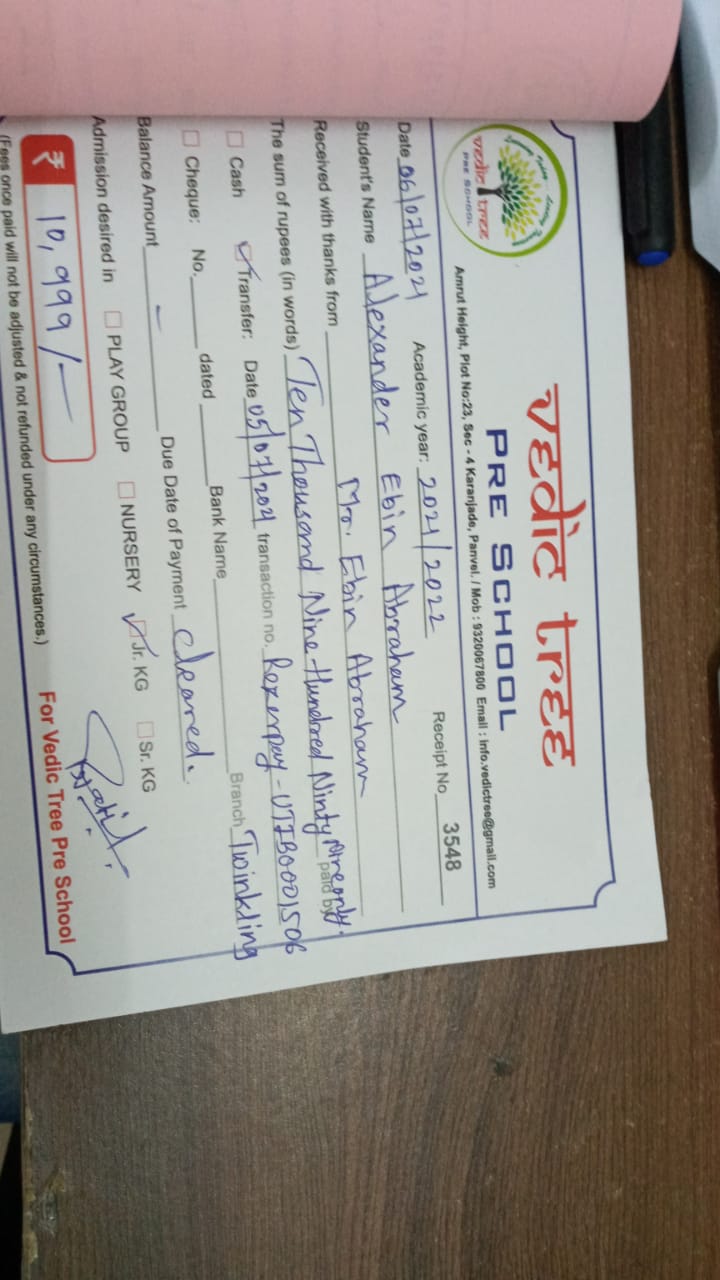 vedic tree
PRE SCHOOL
vedic tree
PRE SCHOOL
Amrut Height, Plot No:23, Sec - 4 Karanjade, Panvel. / Mob : 9320067800 Email : info.vedictree@gmail.com
Date 06/07/2021 Academic year: 2021/2022 Receipt No 3548
Student's Name Alexander Ebin Abraham
Received with thanks from Mr. Ebin Abraham
The sum of rupees (in words) Ten Thousand Nine Hundred Ninty Nine only. paid by
Cash Transfer: Date 05/07/2021 transaction no. Rexerpay - UTIB0001506
Cheque: No. dated Bank Name Branch Twinkling
Balance Amount - Due Date of Payment Cleared.
Admission desired in PLAY GROUP NURSERY Jr. KG Sr. KG
₹ 10,999/-
(Fees once paid will not be adjusted & not refunded under any circumstances.) For Vedic Tree Pre School